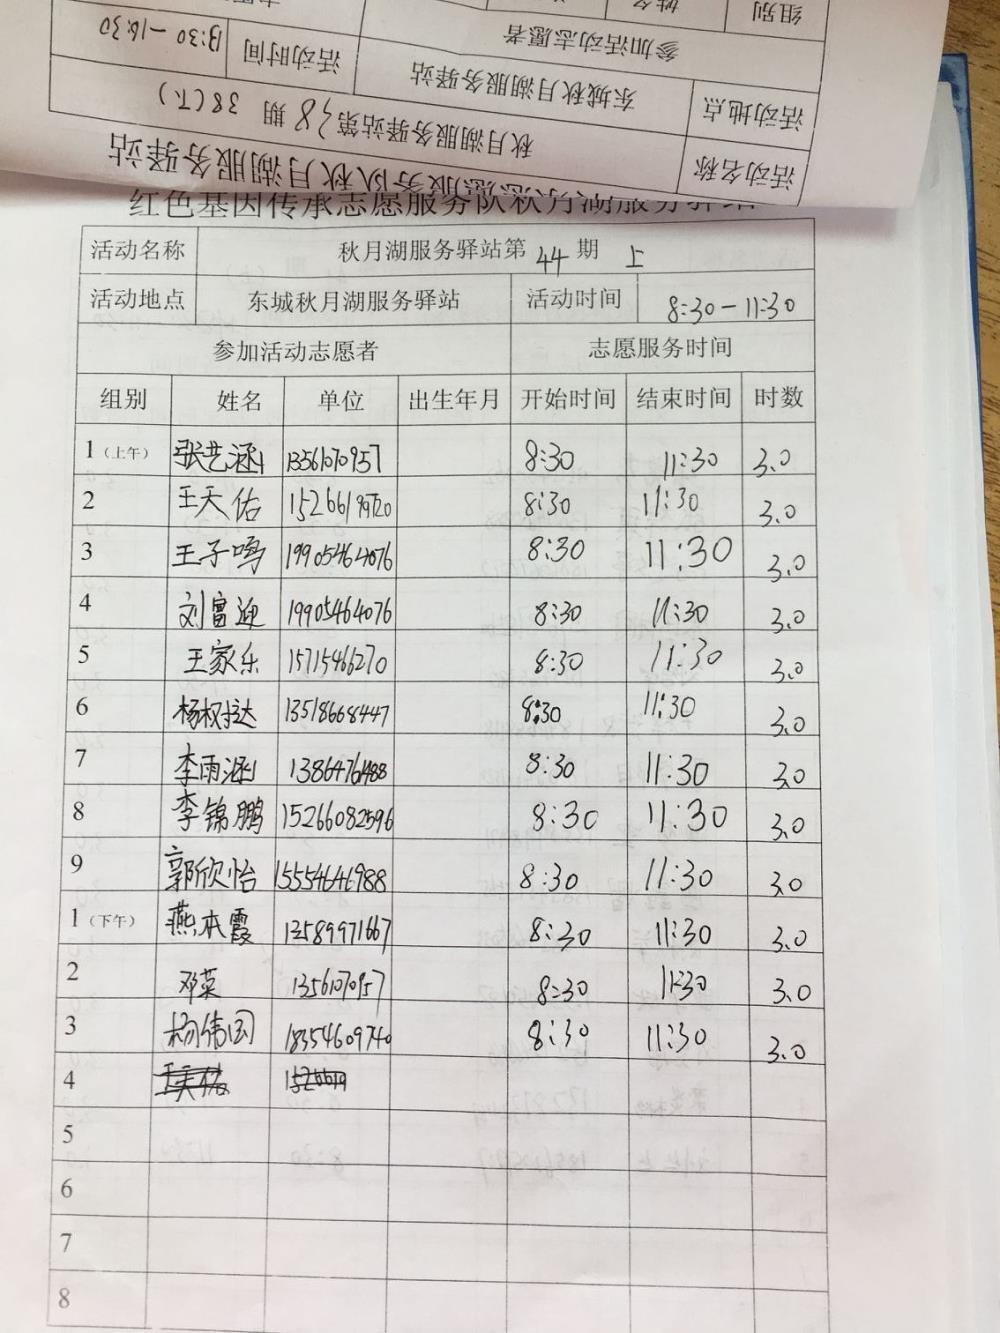 组别 姓名
参加活动志愿者
活动地点 东城秋月湖服务驿站 活动时间 13:30-16:30
活动名称 秋月湖服务驿站第38期 38(下)
志愿服务队秋月湖服务驿站
红色基因传承志愿服务队秋月湖服务驿站
活动名称 秋月湖服务驿站第44期 上
活动地点 东城秋月湖服务驿站 活动时间 8:30-11:30
参加活动志愿者 志愿服务时间
组别 姓名 单位 出生年月 开始时间 结束时间 时数
1(上午) 张艺涵 13561070957 8:30 11:30 3.0
2 王天佑 15266199720 8:30 11:30 3.0
3 王子鸣 19905464076 8:30 11:30 3.0
4 刘富迎 19905464076 8:30 11:30 3.0
5 王家乐 15715466270 8:30 11:30 3.0
6 杨权达 13518668447 8:30 11:30 3.0
7 李雨涵 13864761488 8:30 11:30 3.0
8 李锦鹏 15266082596 8:30 11:30 3.0
9 郭欣怡 15554646988 8:30 11:30 3.0
1(下午) 燕本霞 13589971667 8:30 11:30 3.0
2 邓菜 13561070957 8:30 11:30 3.0
3 杨伟国 18354609740 8:30 11:30 3.0
4 王天佑
5
6
7
8